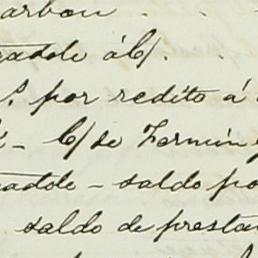 arbon . .
gadole á C/.
S. por redito á
- C/ de Fermin
gadole - saldo po
saldo de presta